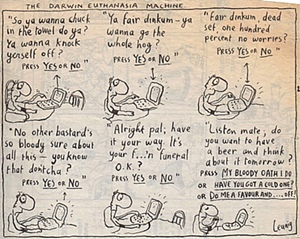 THE DARWIN EUTHANASIA MACHINE
"So ya wanna chuck
in the towel do ya?
Ya wanna knock
yourself off?"
PRESS YES OR NO
"Ya fair dinkum - ya
wanna go the
whole hog?"
PRESS YES OR NO
"Fair dinkum, dead
set, one hundred
percent no worries?"
PRESS YES OR NO
"No other bastard's
so bloody sure about
all this - you know
that dontcha?"
PRESS YES OR NO
"Alright pal; have
it your way. It's
your f...n funeral
O.K.?
PRESS YES OR NO
"Listen mate; do
you want to have
a beer and think
about it tomorrow?
PRESS MY BLOODY OATH I DO
OR HAVE YOU GOT A COLD ONE?
OR DO ME A FAVOUR AND.... OFF
Leunig